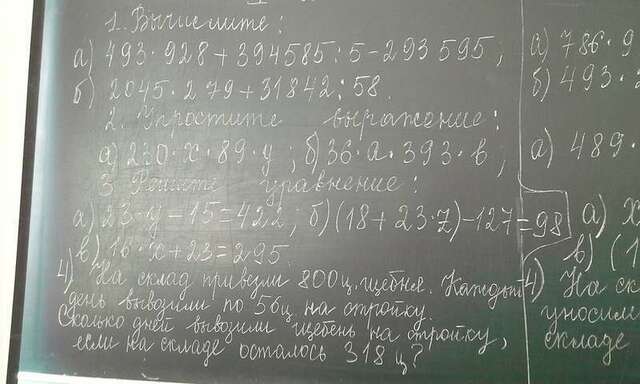 1. Вычислите:
а) 493·928+394585:5-293595;
б) 2045·279+31842:58.
2. Упростите выражение:
а) 230·x·89·y; б) 36·a·393·b;
3. Решите уравнение:
а) 23·y-15=422; б) (18+23·z)-127=98
в) 16·x+23=295.
4) На склад привезли 800ц. щебня. Каждый
день вывозили по 56ц на стройку.
Сколько дней вывозили щебень на стройку,
если на складе осталось 318ц?
а) 786·9
б) 493·
а) 489·
а) x
в) (1
4) На ск
уносим
складе